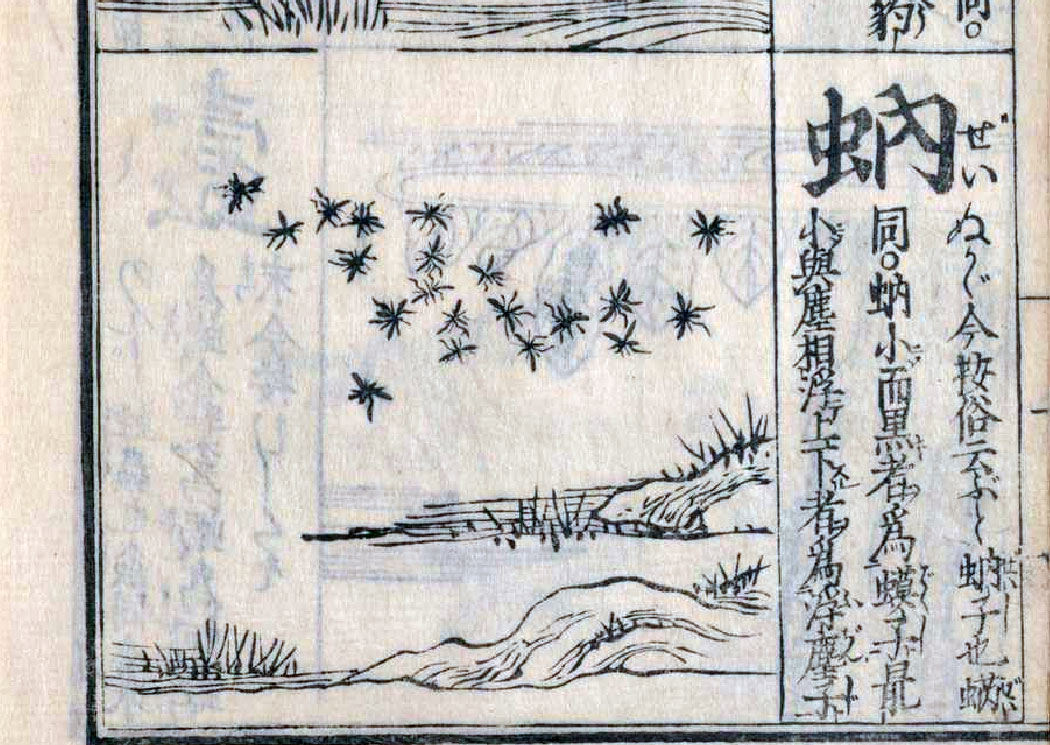 同。
豹
蚋 ぜい
ぬかゞ今按俗云ぶと蚋子也蜹
同。蚋小而黒者爲蟆子㝡
小與塵相浮上下者爲浮塵子